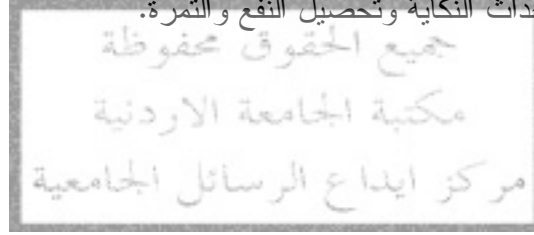 حداث النكاية وتحصيل النفع والثمرة.
جميع الحقوق محفوظة
مكتبة الجامعة الاردنية
مركز ايداع الرسائل الجامعية